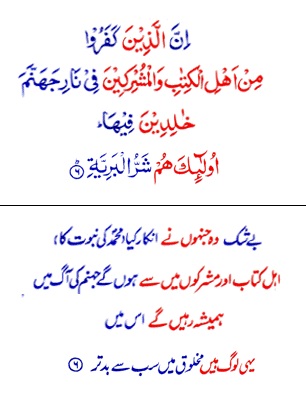 اِنَّ الَّذِيْنَ كَفَرُوْا
مِنْ اَهْلِ الْكِتٰبِ وَالْمُشْرِكِيْنَ فِىْ نَارِ جَهَنَّمَ
خٰلِدِيْنَ فِيْهَا ؕ
اُولٰٓئِكَ هُمْ شَرُّ الْبَرِيَّةِ ؕ ﴿۶﴾
بے شک وہ جنہوں نے انکار کیا (محمّد کی نبوت کا)
اہل کتاب اور مشرکوں میں سے ہوں گے جہنم کی آگ میں
ہمیشہ رہیں گے اس میں
یہی لوگ ہیں مخلوق میں سب سے بدتر ﴿۶﴾